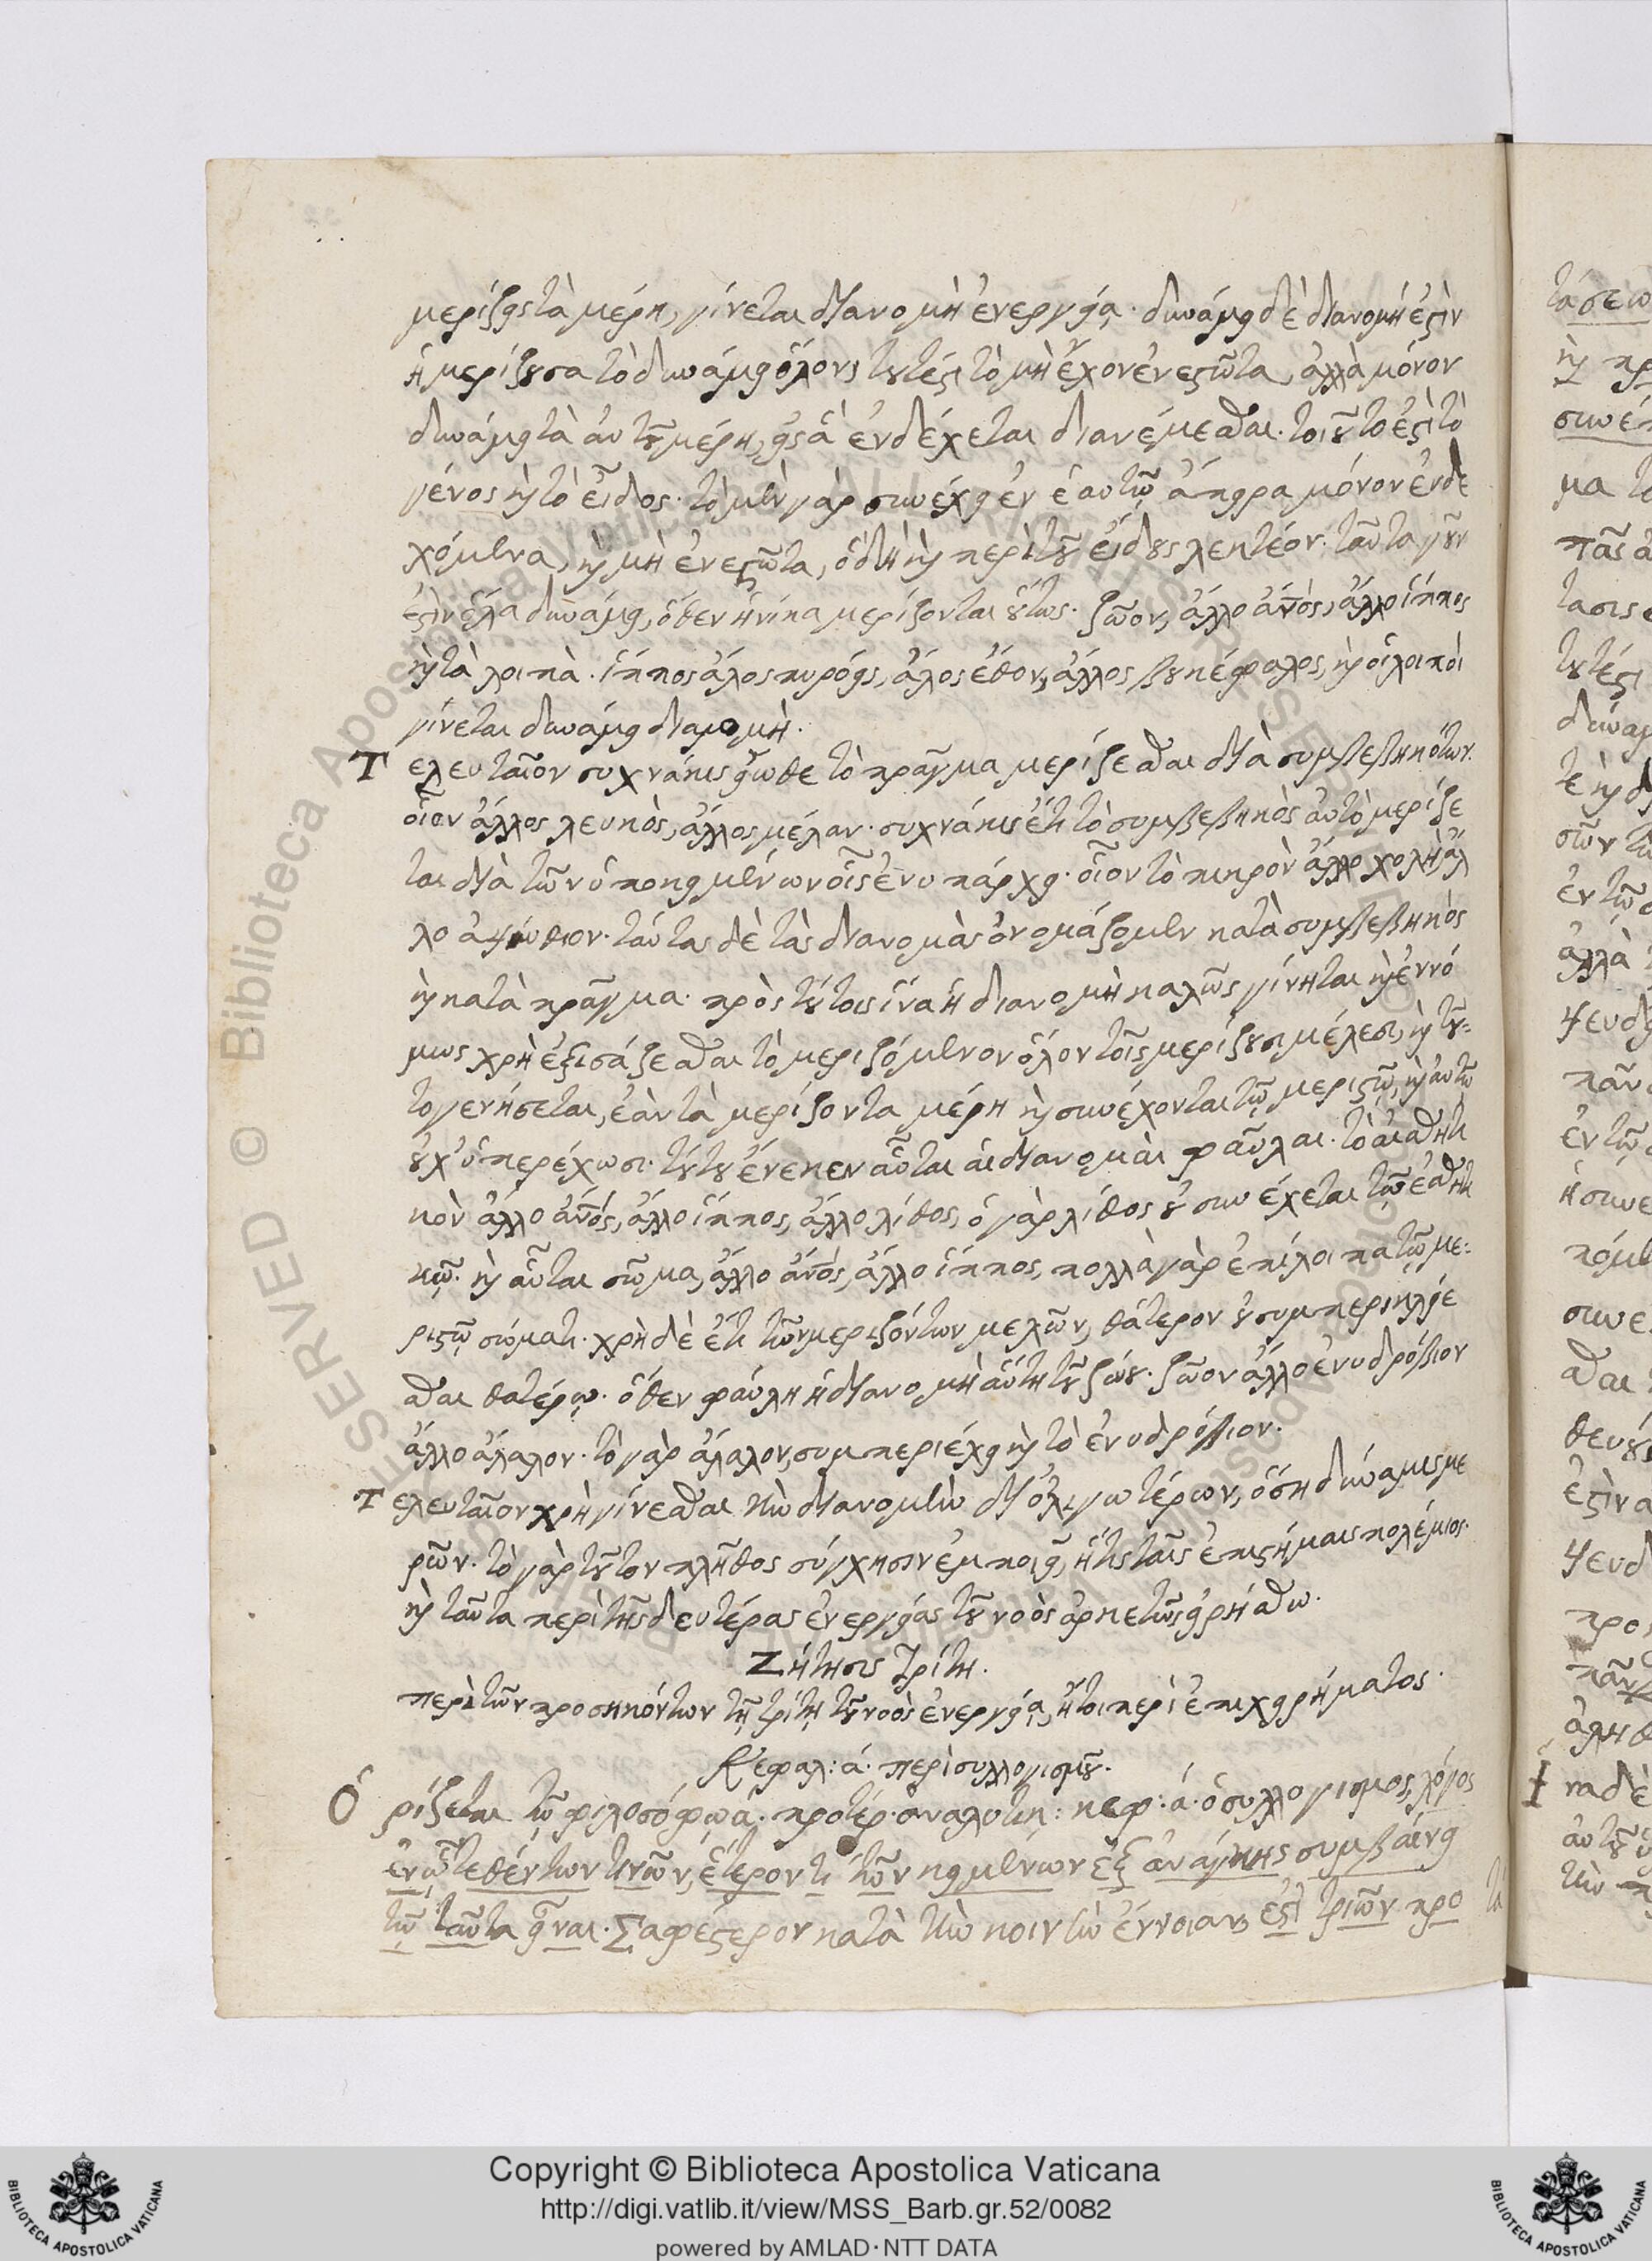 μερίζει τὰ μέρη, γίνεται διανομὴ ἐνεργείᾳ. δυνάμει δὲ διανομή ἐστὶν
ἡ μερίζουσα τὸ δυνάμει ὅλον, τουτέστι τὸ μὴ ἔχον ἐνεστῶτα, ἀλλὰ μόνον
δυνάμει τὰ αὐτοῦ μέρη, εἰς ἃ ἐνδέχεται διανέμεσθαι. τοιοῦτο ἐστὶ τὸ
γένος καὶ τὸ εἶδος. τὸ μὲν γὰρ συνέχει ἐν ἑαυτῷ ἄπειρα μόνον ἐνδε
χόμενα, καὶ μὴ ἐνεστῶτα, ὃ δὴ καὶ περὶ τοῦ εἴδους λεκτέον. ταῦτα γοῦν
ἐστὶν ὅλα δυνάμει, ὅθεν ἡνίκα μερίζονται οὕτως. ζῶον, ἄλλο ἄνος, ἄλλο ἵππος
καὶ τὰ λοιπὰ. ἵππος ἄλος πυρόεις, ἄλος ἔθον, ἄλλος βουκέφαλος, καὶ οἱ λοιποὶ
γίνεται δυνάμει διαμομὴ.
Τελευταῖον συχνάκις εἴωθε τὸ πρᾶγμα μερίζεσθαι διὰ συμβεβηκότων.
οἷον ἄλλος λευκὸς, ἄλλος μέλαν. συχνάκις ἔτι τὸ συμβεβηκὸς αὐτὸ μερίζε
ται διὰ τῶν ὑποκειμένων οἷς ἐνυπάρχει. οἷον τὸ πικρὸν ἄλλο χολὴ ἄλ
λο ἀψίνθιον. ταύτας δὲ τὰς διανομὰς ὀνομάζομεν κατὰ συμβεβηκὸς
καὶ κατὰ πρᾶγμα. πρὸς τούτοις ἵνα ἡ διανομὴ καλῶς γίνηται καὶ ἐννό
μως χρὴ ἐξισάζεσθαι τὸ μεριζόμενον ὅλον τοῖς μερίζουσι μέλεσι, καὶ τοῦ-
το γενήσεται, ἐὰν τὰ μερίζοντα μέρη καὶ συνέχονται τῷ μεριστῷ, καὶ αὐτῷ
οὐχ' ὑπερέχωσι. τούτου ἕνεκεν αὗται αἱ διανομὰι φαῦλαι. τὸ αἰσθητι
κὸν ἄλλο ἄνος, ἄλλο ἵππος, ἄλλο λίθος, ὁ γὰρ λίθος οὐ συνέχεται τῷ ἐσθητι
κῷ. καὶ αὗται σῶμα, ἄλλο ἄνος, ἄλλο ἵππος, πολλὰ γὰρ ἐπίλοιπα τῷ με-
ριστῷ σώματι. χρὴ δὲ ἔτι τῶν μεριζόντων μελῶν, θάτερον οὐ συμπερικλείε
σθαι θατέρῳ. ὅθεν φαύλη ἡ διανομὴ αὕτη τοῦ ζώου. ζῶον ἄλλο ἐνυδρόβιον
ἄλλο ἄλαλον. τὸ γὰρ ἄλαλον, συμπεριέχει καὶ τὸ ἐνυδρόβιον.
Τελευταῖον χρὴ γίνεσθαι τὴν διανομὴν δι' ὀλιγωτέρων, ὅση δύναμις με
ρῶν. τὸ γὰρ τούτων πλῆθος σύγχησιν ἐμποιεῖ, ἥτις ταῖς ἐπιστήμαις πολέμιος.
καὶ ταῦτα περὶ τῆς δευτέρας ἐνεργείας τοῦ νοὸς ἀρκετῶς εἰρήσθω.
Ζήτησις τρίτη.
περὶ τῶν προσηκόντων τῇ τρίτῃ τοῦ νοὸς ἐνεργείᾳ, ἤτοι περὶ ἐπιχειρήματος.
Κεφαλ: ά. περὶ συλλογισμοῦ.
Ὁρίζεται τῷ φιλοσόφῳ ά. προτέρ. ἀναλυτικ: κεφ: ά. ὁ συλλογισμος, λόγος
ἐν ᾧ τεθέντων τινῶν, ἕτερον τι τῶν κειμένων ἐξ ἀνάγκης συμβαίνει
τῷ ταῦτα εἶναι. Σαφέστερον κατὰ τὴν κοινὴν ἔννοιαν, ἐστὶ τριῶν προ τά
Copyright © Biblioteca Apostolica Vaticana
http://digi.vatlib.it/view/MSS_Barb.gr.52/0082
powered by AMLAD·NTT DATA